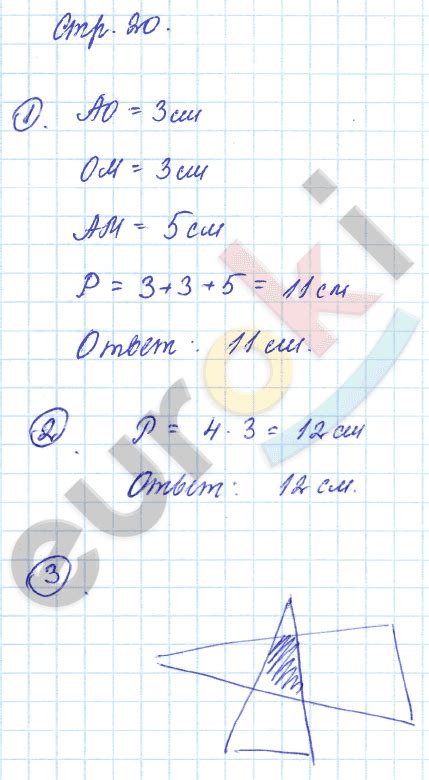 Стр. 20.
1. АО = 3 см
ОМ = 3 см
АМ = 5 см
Р = 3 + 3 + 5 = 11 см
Ответ: 11 см.
2. Р = 4 · 3 = 12 см
Ответ: 12 см.
3.
euroki